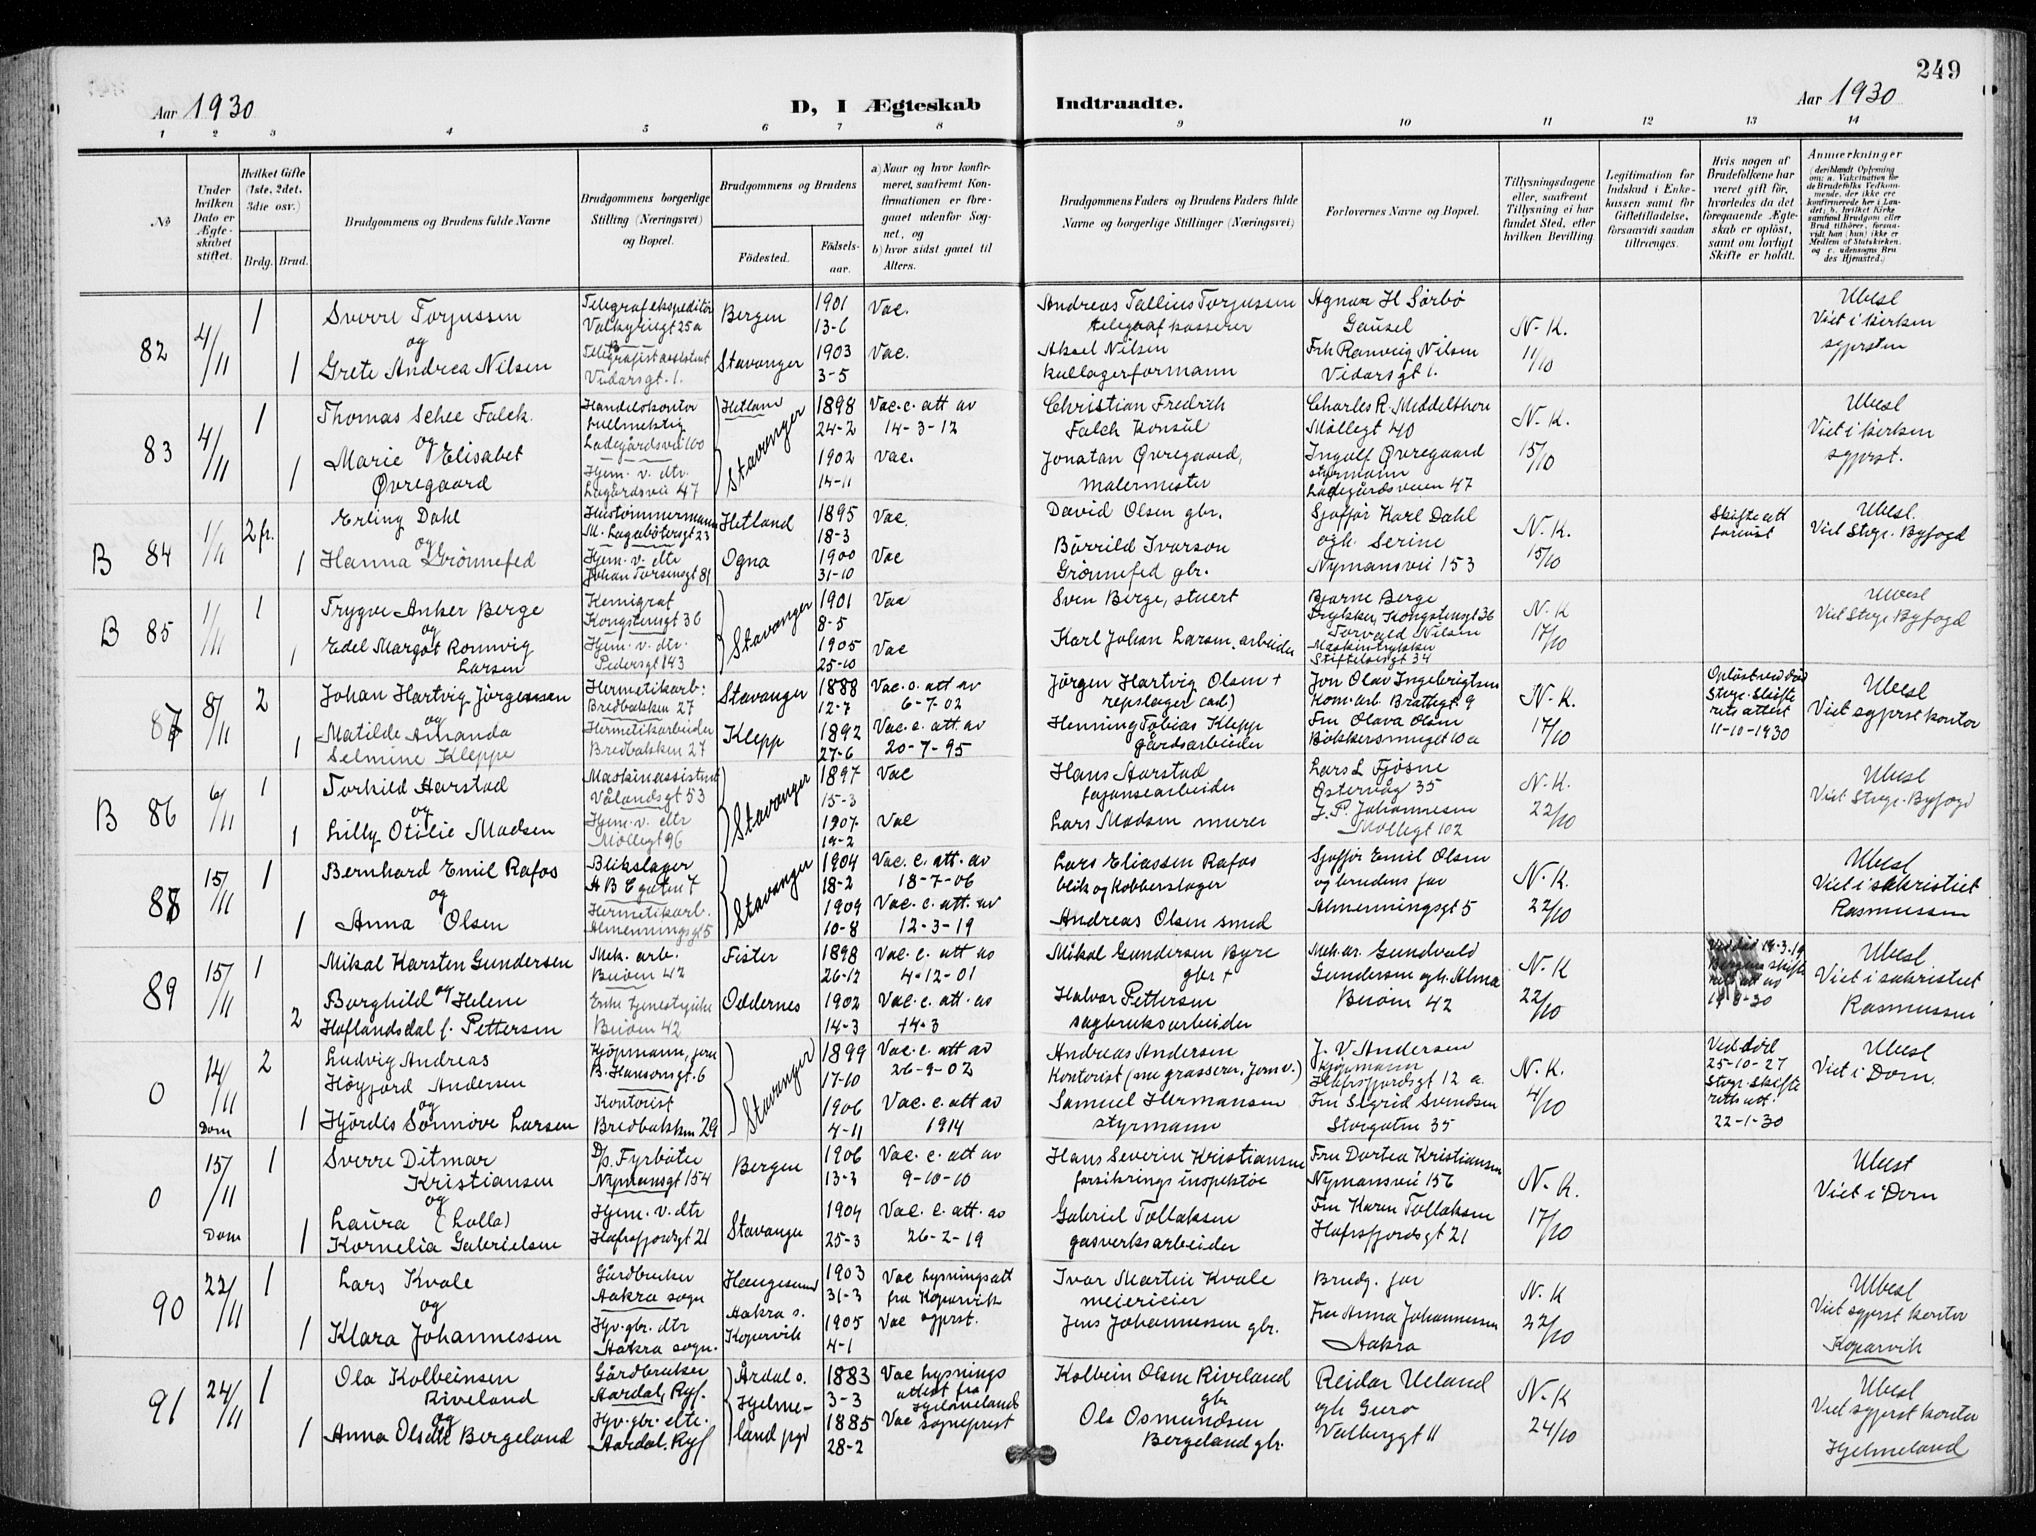 249
Aar 1930
D, I Ægteskab
Indtraadte.
Aar 1930
1 2 3 4 5 6 7 8 9 10 11 12 13 14
№
Under hvilken Dato er Ægteskabet stiftet.
Hvilket Gifte (1ste, 2det, 3die osv.)
Brdg. Brud.
Brudgommens og Brudens fulde Navne
Brudgommens borgerlige Stilling (Næringsvei) og Bopæl.
Brudgommens og Brudens
Födested.
Födselsaar.
a) Naar og hvor konfirmeret, saafremt Konfirmationen er foregaaet udenfor Sognet, og
b) hvor sidst gaaet til Alters.
Brudgommens Faders og Brudens Faders fulde Navne og borgerlige Stillinger (Næringsvei)
Forlovernes Navne og Bopæl.
Tillysningsdagene eller, saafremt Tillysning ei har fundet Sted, efter hvilken Bevilling
Legitimation for Indskud i Enkekassen samt for Giftetilladelse, forsaavidt saadan tiltrænges.
Hvis nogen af Brudefolkene har været gift för, hvorledes da det foregaaende Ægteskab er oplöst, samt om lovligt Skifte er holdt.
Anmærkninger
82
4/11
1
Sverre Torjussen
og
1
Grete Andrea Nilsen
Telegrafekspeditör
Valkyriegt 25a
Telegrafistassistent
Vidarsgt. 1.
Bergen
Stavanger
1901
13-6
1903
3-5
Vac.
Vac.
Andreas Tallius Torjussen
telegrafkasserer
Aksel Nilsen
kullagerformann
Agnar H Sörbö
Gausel
Frk Ranveig Nilsen
Vidarsgt 1.
N-K.
11/10
Ubesl
Viet i kirken
sgprsten
83
4/11
1
Thomas Schee Falck.
og
1
Marie Elisabet
Øvregaard
Handelskontor
fullmektig
Ladegårdsvei 100
Hjem. v. dtr.
Lagårdsvei 47
Hetland
Stavanger
1898
24-2
1902
14-11
Vac. c. att av
14-3-12
Vac.
Christian Fredrih
Falck Konsul
Jonatan Øvregaard,
malermester
Charles R. Middelthon
Møllegt 40
Ingulf Øvregaard
styrmann
Ladegårdsveien 47
N-K.
15/10
Ubesl
Viet i kirken
sgprst.
B 84
1/11
2 fr.
Erling Dahl
og
1
Hanna Grönnefed
Hustömmermann
M. Lagabötersgt 23
Hjem. v. dtr
Johan Torsensgt 81
Hetland
Ogna
1895
18-3
1900
31-10
Vac.
Vac
David Olsen gbr.
Börrild Ivarson
Grönnefed gbr.
Sjofför Karl Dahl
ogh. Serine
Nymansvei 153
N-K.
15/10
Skifteatt
forevist
Ubesl.
Viet Stvgr. Byfogd
B 85
1/11
1
Trygve Anker Berge
og
1
Edel Margot Romwig
Larsen
Kemigraf
Kongstensgt 36
Hjem. v. dtr.
Pedersgt 143
Stavanger
1901
8-5
1905
25-10
Vac
Vac
Sven Berge, stuert
Karl Johan Larsen. arbeider
Bjarne Berge
Trykker, Kongstensgt 36
Torvald Nilsen
Maskintrykker
Stiftelsesgt 34
N-K
17/10
Ubesl
Viet Stvgr Byfogd
87
8/11
2
Johan Hartvig Jörgensen
og
1
Matilde Amanda
Selmine Kleppe
Hermetikarb:
Bredbakken 27
Hermetikarbeider
Bredbakken 27
Stavanger
Klepp
1888
12-7
1892
27-6
Vac. c. att av
6-7-02
Vac. c. att av
20-7-95
Jörgen Hartvig Olsen +
repslager (ad)
Henning Tobias Klepp
gårdsarbeider
Jon Olav Ingebrigtsen
Kom. arb. Brattegt 9
Fru Olava Olsen
Bökkersmuget 10a
N-K.
17/10
Oplöst ved död
Stvgr. Skifte
rits attest
11-10-1930
Ubesl
Viet sgprst kontor
B 86
6/11
1
Torkild Aarstad
og
1
Lilly Otilie Madsen
Maskinassistent
Vålandsgt 53
Hjem. v. dtr
Møllegt 96
Stavanger
1897
15-3
1907.
19-2
Vac
Vac
Hans Aarstad
fajansearbeider
Lars Madsen murer
Lars L Fjøsne
Østervåg 35
J. P. Johannesen
Møllegt 102
N-K.
22/10
Ubesl
Viet Stvgr. Byfogd
88
15/11
1
Bernhard Emil Rafos
og
1
Anna Olsen
Blikslager
A B C gaten 7
Hermetikarb.
Almenningsgt 5
Stavanger
1904
18-2
1909
10-8
Vac. c. att. av
18-7-06
Vac. c. att. av
12-3-19
Lars Eliassen Rafos
blik og Kobberslager
Andreas Olsen smed
Sjofför Emil Olsen
og brudens far
Almenningsgt 5
N-K.
22/10
Ubesl
Viet i sakristiet
Rasmussen
89
15/11
1
Mikal Karsten Gundersen
og
2
Borghild Helene
Haflandsdal f. Pettersen
Mek. arb.
Buöen 42
Enke tjenestepike
Buöen 42
Fister
Oddernes
1898
26-12
1902
14-3
Vac. c. att av
4-12-01
Vac. c. att. av
14-3
Mikal Gundersen Byre
gbr +
Halvor Pettersen
sagbruksarbeider
Mek. ar. Gundvald
Gundersen ogh. Alma
Buöen 42
N-K
22/10
Ved död 14-3-19
Bergens skifte
rett att av
19-8-30
Ubesl
Viet i sakristiet
Rasmussen
0
14/11
Dom
2
Ludvig Andreas
Höyfjord Andersen
og
1
Hjördis Sönnöve Larsen
Kjöpmann, jern
B. Hansonsgt. 6
Kontorist
Bredbakken 29
Stavanger
1899
17-10
1906
4-11
Vac. c. att av
26-9-02
Vac. c. att av
1914
Andreas Andersen
Kontorist (nu grasserer, Jern v.)
Samuel Hermansen
styrmann
J. V Andersen
kjöpmann
Hafrsfjordsgt 12 a.
Fru Sigrid Svendsen
Storgaten 35
N-K.
4/10
Ved död
25-10-27
Stvgr. Skifte
retts att.
22-1-30
Ubesl
Viet i Dom.
0
15/11
Dom
1
Sverre Ditmar
Kristiansen
og
1
Laura (Lolla)
Kornelia Gabrielsen
D/p. Fyrböter
Nymansgt 154
Hjem. v. dtr
Hafrsfjordgt 21
Bergen
Stavanger
1906
13-3
1904
25-3
Vac. c. att av
9-10-10
Vac. c. att. av
26-2-19
Hans Severin Kristiansen
forsikringsinspektör
Gabriel Tollaksen
gasverksarbeider
Fru Dortea Kristiansen
Nymansvei 156
Fru Karen Tollaksen
Hafrsfjordsgt 21
N-K.
17/10
Ubesl
Viet i Dom
90
22/11
1
Lars Kvale
og
1
Klara Johannessen
Gårdbruker
Aakra sogn
Hjv. gbr. dtr
Aakra sogn.
Haugesund
Aakra s.
Kopervik
1903
31-3
1905
4-1
Vac lysningsatt
fra Kopervik
Vac sgprst.
Ivar Martin Kvale
meierieier
Jens Johannessen gbr.
Brudg. far
Fru Anna Johannessen
Aakra
N-K
22/10
Ubesl
Viet sgprst kontor
Kopervik
91
24/11
1
Ola Kolbeinsen
Riveland
og
1
Anna Olsdtr Bergeland
Gårdbruker
Aardal, Ryf.
Hjv. gbr. dtr.
Aardal, Ryf
Årdal s.
Hjelmeland pgd
1883
3-3
1885
28-2
Vac lysnings
attest fra
Hjelmeland
Vac sogneprest
Kolbein Olsen Riveland
gbr
Ola Osmundsen
Bergeland gbr.
Reidar Ueland
ogh Guro
Valbergt 11
N-K
24/10
Ubesl
Viet sgprst kontor
Hjelmeland